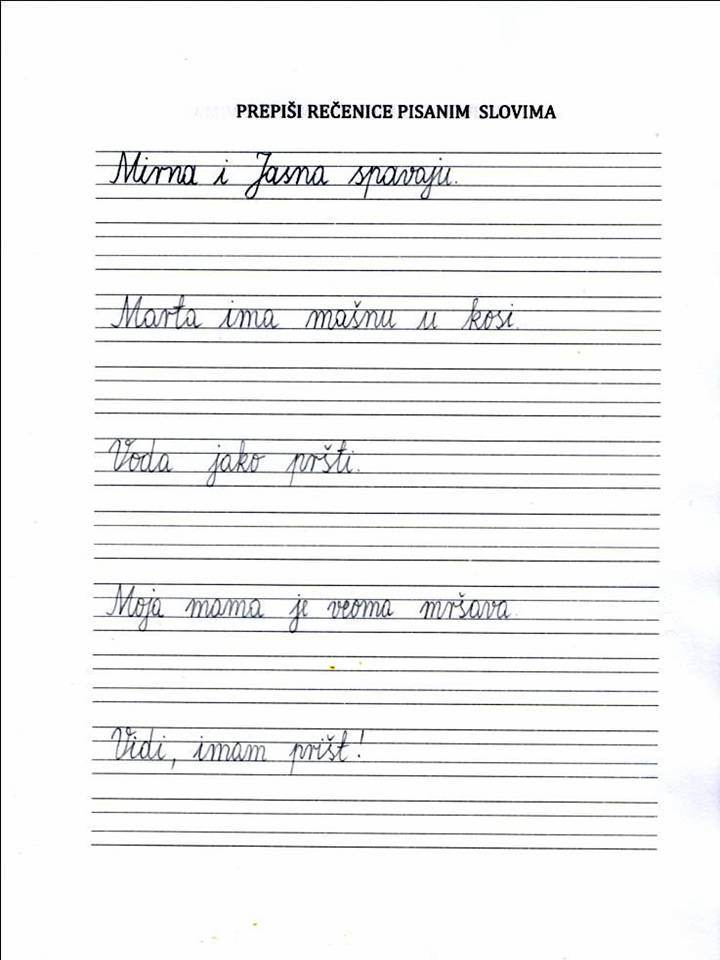 PREPIŠI REČENICE PISANIM SLOVIMA
Mirna i Jasna spavaju.
Marta ima mašnu u kosi.
Voda jako pršti.
Moja mama je veoma mršava.
Vidi, imam prišt!